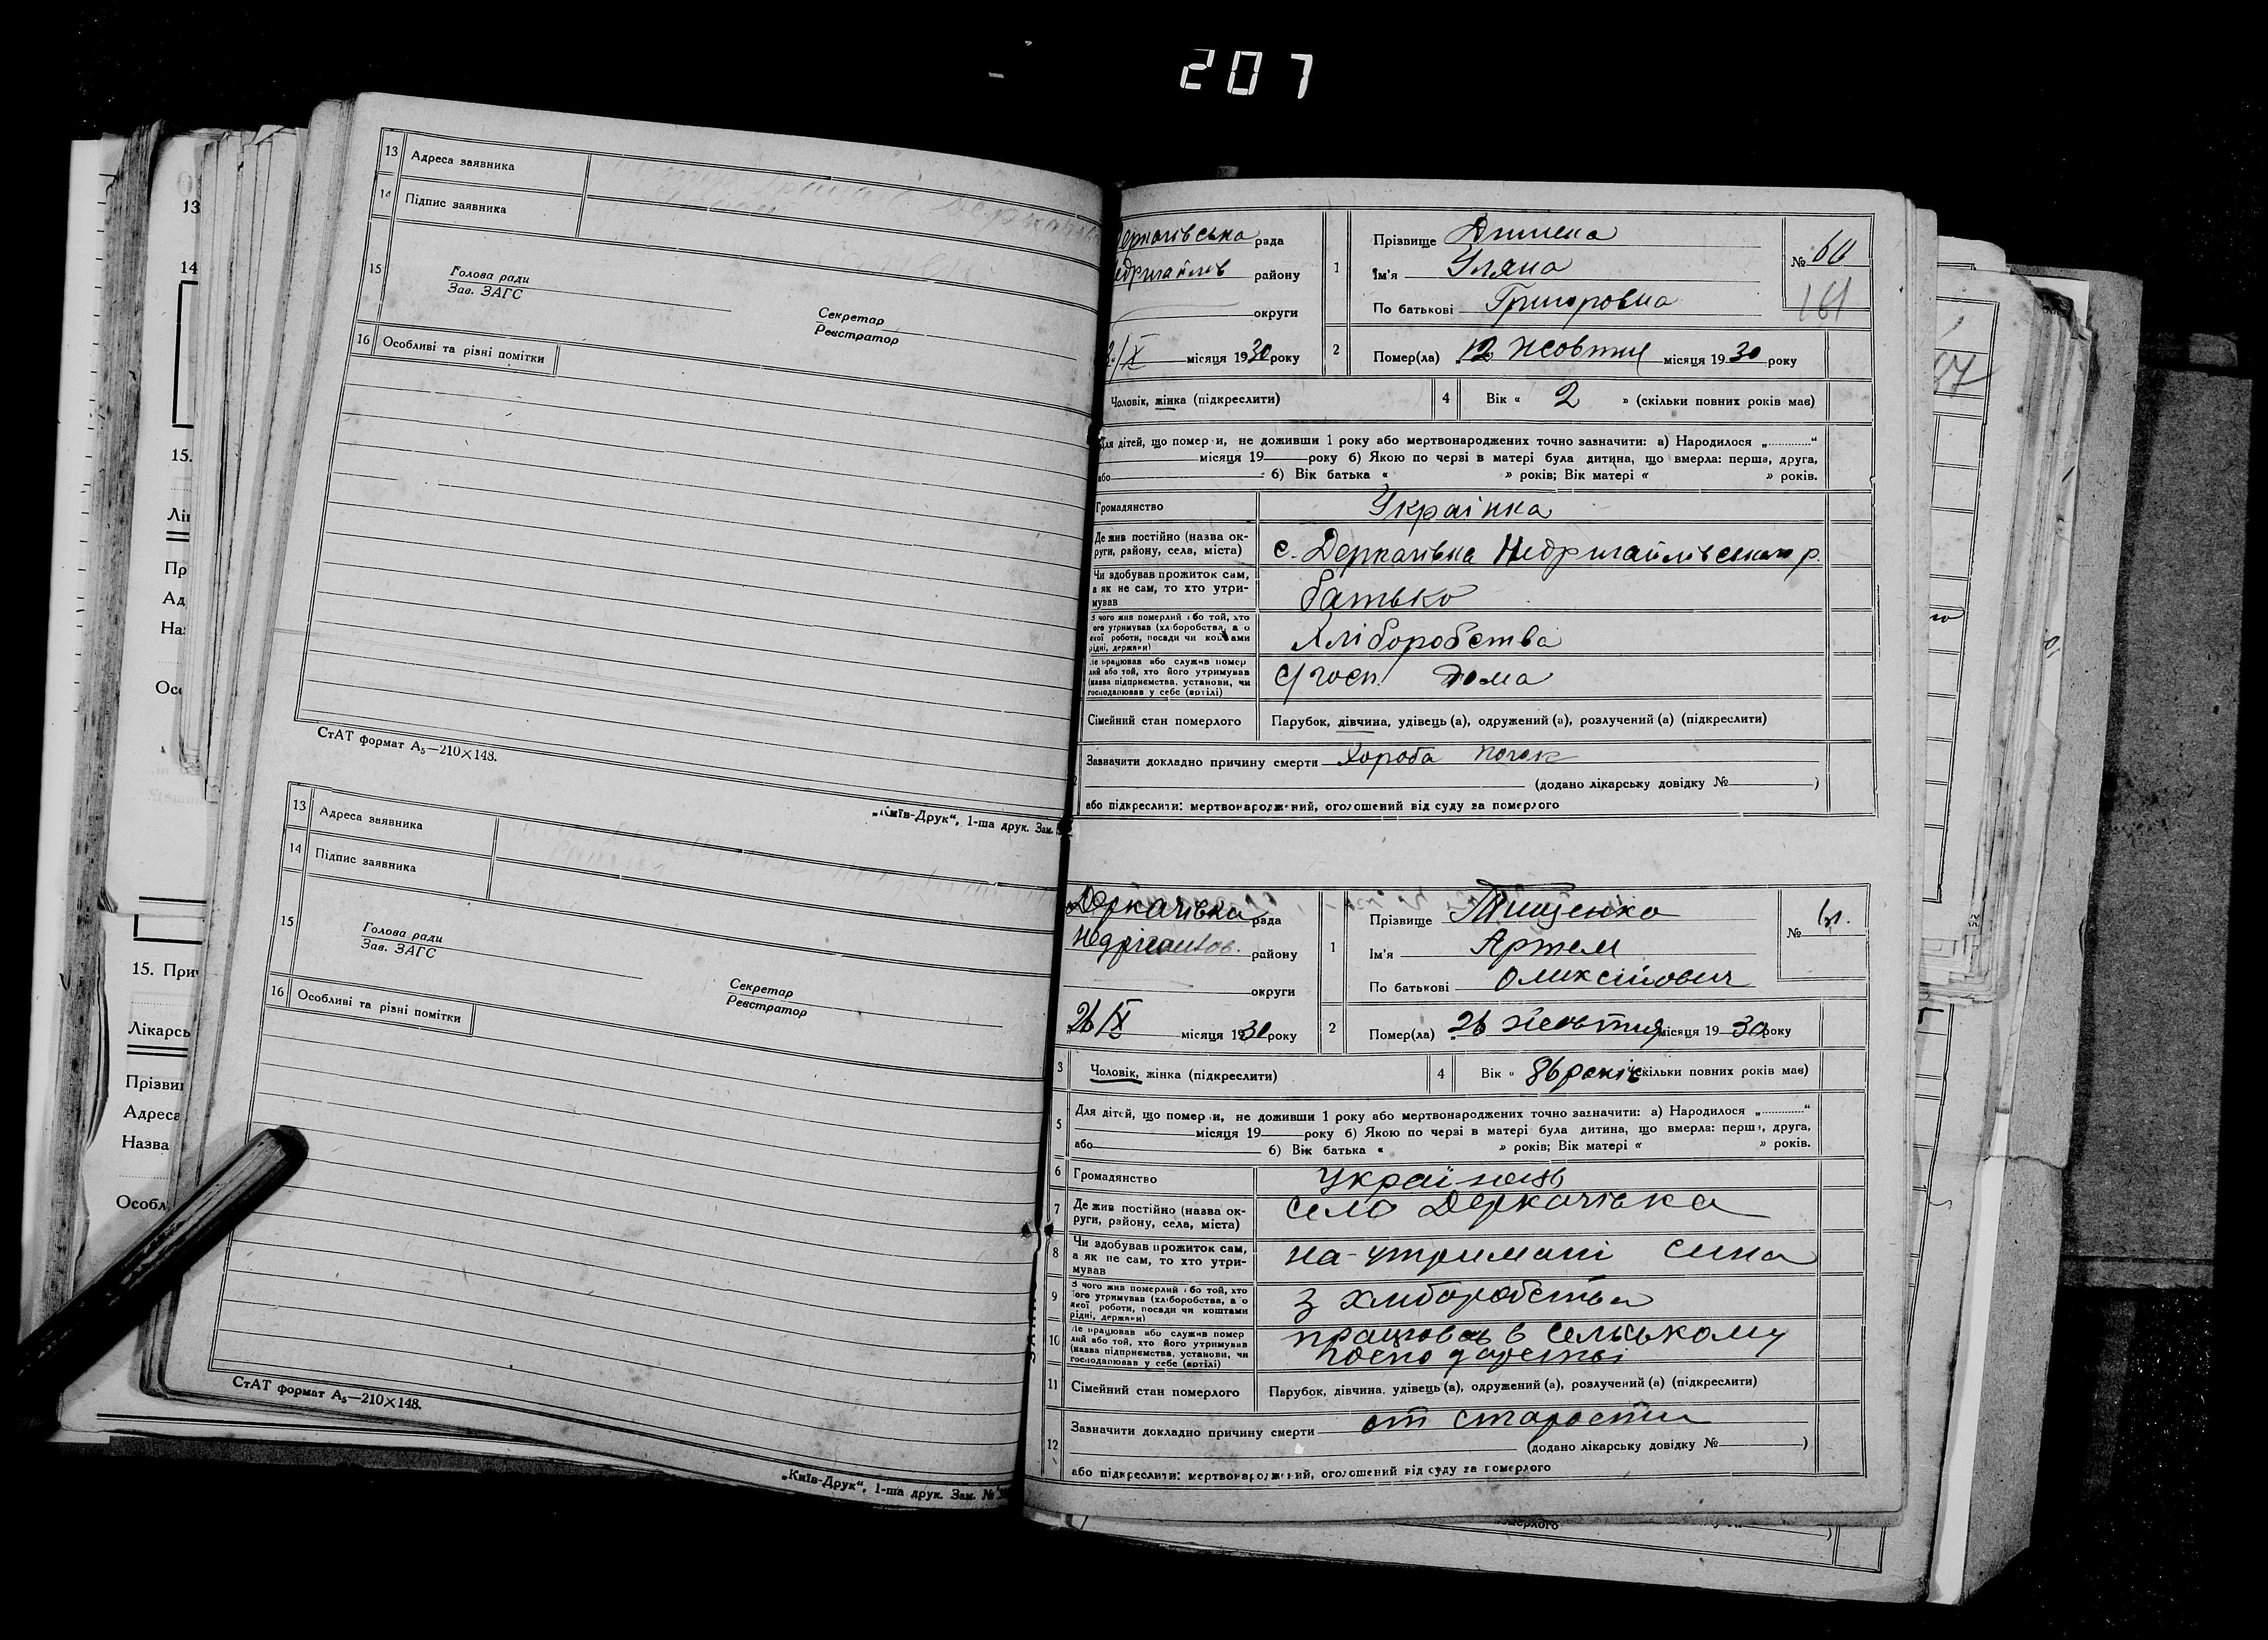 207
13 Адреса заявника
14 Підпис заявника
15
Голова ради
Зав. ЗАГС
Секретар
Реєстратор
16 Особливі та різні помітки
СтАТ формат А₅—210×148.
„Київ-Друк“, 1-ша друк. Зам.
13 Адреса заявника
14 Підпис заявника
15
Голова ради
Зав. ЗАГС
Секретар
Реєстратор
16 Особливі та різні помітки
СтАТ формат А₅—210×148.
„Київ-Друк“, 1-ша друк. Зам. №
13
14
15.
Лі
Пр
Ад
На
Ос
15. При
Лікарсь
Прізви
Адреса
Назва
Особл
рада
району
округи
місяця 1930 року
1
Прізвище
Ім'я Уляна
По батькові Григоровна
№ 60
161
2 Помер(ла) 12 жовтня місяця 1930 року
Чоловік, жінка (підкреслити)
4 Вік « 2 » (скільки повних років має)
Для дітей, що померли, не доживши 1 року або мертвонароджених точно зазначити: а) Народилося „..........“
місяця 19 року б) Якою по черзі в матері була дитина, що вмерла: перша, друга,
або б) Вік батька « » років; Вік матері « » років.
Громадянство Українка
Де жив постійно (назва ок-
руги, району, села, міста) с. Деркачівка Недригайлівського р.
Чи здобував прожиток сам,
а як не сам, то хто утри-
мував батько
З чого жив померлий або той, хто
його утримував (хліборобства, або
якої роботи, посади чи коштами
рідні, держави) Хліборобства
Де працював або служив помер
лий або той, хто його утримував
(назва підприємства, установи, чи
господарював у себе (артілі) с/госп. дома
Сімейний стан померлого Парубок, дівчина, удівець (а), одружений (а), розлучений (а) (підкреслити)
Зазначити докладно причину смерти Хороба почек
(додано лікарську довідку № )
або підкреслити: мертвонароджений, оголошений від суду за померлого
Деркачівка рада
району
округи
26/X місяця 1930 року
1
Прізвище Тищенко
Ім'я Артем
По батькові Оликсійович
№ 61.
2 Помер(ла) 26 жовтня місяця 1930 року
3 Чоловік, жінка (підкреслити)
4 Вік « 86 років скільки повних років має)
5 Для дітей, що померли, не доживши 1 року або мертвонароджених точно зазначити: а) Народилося „..........“
місяця 19 року б) Якою по черзі в матері була дитина, що вмерла: перша, друга,
або б) Вік батька « » років; Вік матері « » років.
6 Громадянство Українець
7 Де жив постійно (назва ок-
руги, району, села, міста) село Деркачівка
8 Чи здобував прожиток сам,
а як не сам, то хто утри-
мував на утримані сина
9 З чого жив померлий або той, хто
його утримував (хліборобства, або
якої роботи, посади чи коштами
рідні, держави) з хліборобства
10 Де працював або служив помер
лий або той, хто його утримував
(назва підприємства, установи, чи
господарював у себе (артілі) працював в сельському
господарстві
11 Сімейний стан померлого Парубок, дівчина, удівець (а), одружений (а), розлучений (а) (підкреслити)
12 Зазначити докладно причину смерти от старости
(додано лікарську довідку № )
або підкреслити: мертвонароджений, оголошений від суду за померлого
померлого